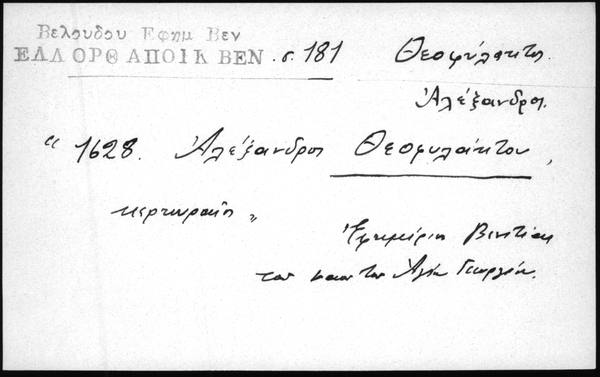 Βελουδου Εφημ Βεν
ΕΛΛ ΟΡΘ ΑΠΟΙΚ ΒΕΝ. σ. 181
Θεοφύλακτος
Ἀλέξανδρος.
“ 1628. Ἀλέξανδρος Θεοφυλάκτου,
κερκυραῖος „
Ἐφημέριοι Βενετίας
του ναου του Ἁγίου Γεωργίου.